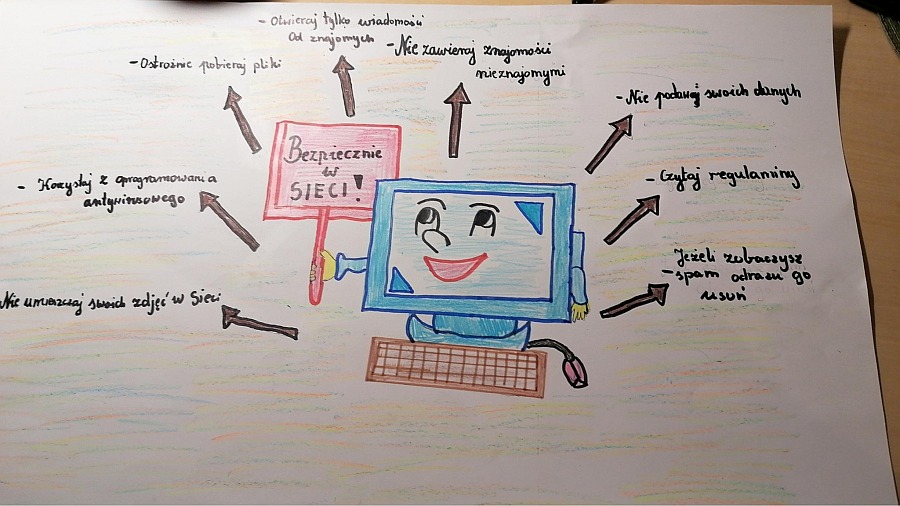 - Otwieraj tylko wiadomości
od znajomych
- Nie zawieraj znajomości
nieznajomymi
- Ostrożnie pobieraj pliki
- Nie podawaj swoich danych
Bezpiecznie
w
SIECI!
- Korzystaj z oprogramowania
antywirusowego
- Czytaj regulaminy
Jeżeli zobaczysz
- spam odrazu go
usuń
Nie umieszczaj swoich zdjęć w Sieci